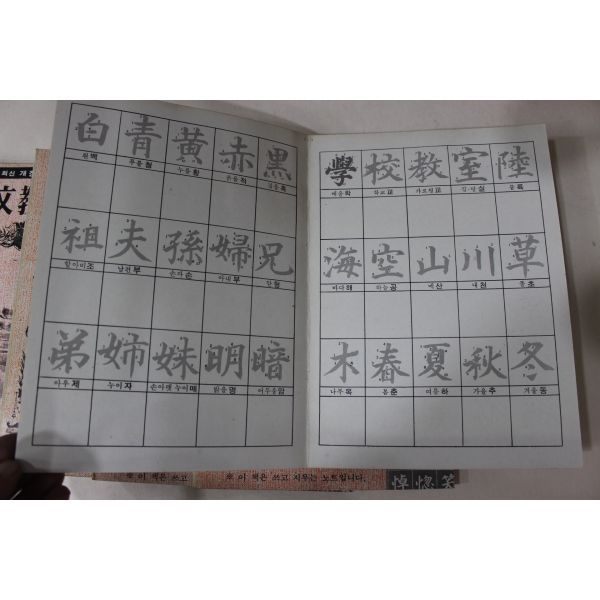 최신 개정
白 青 黃 赤 黑
흰백 푸를청 누를황 붉을적 검을흑
祖 夫 孫 婦 兄
할아비조 남편부 손자손 아내부 맏형
弟 姉 妹 明 暗
아우제 누이자 손아래누이매 밝을명 어두울암
學 校 敎 室 陸
배울학 학교교 가르칠교 집·방실 뭍륙
海 空 山 川 草
바다해 하늘공 메산 내천 풀초
木 春 夏 秋 冬
나무목 봄춘 여름하 가을추 겨울동
※ 이 책은 쓰고
※ 이 책은 쓰고 지우는 노트입니다.
悼 惚